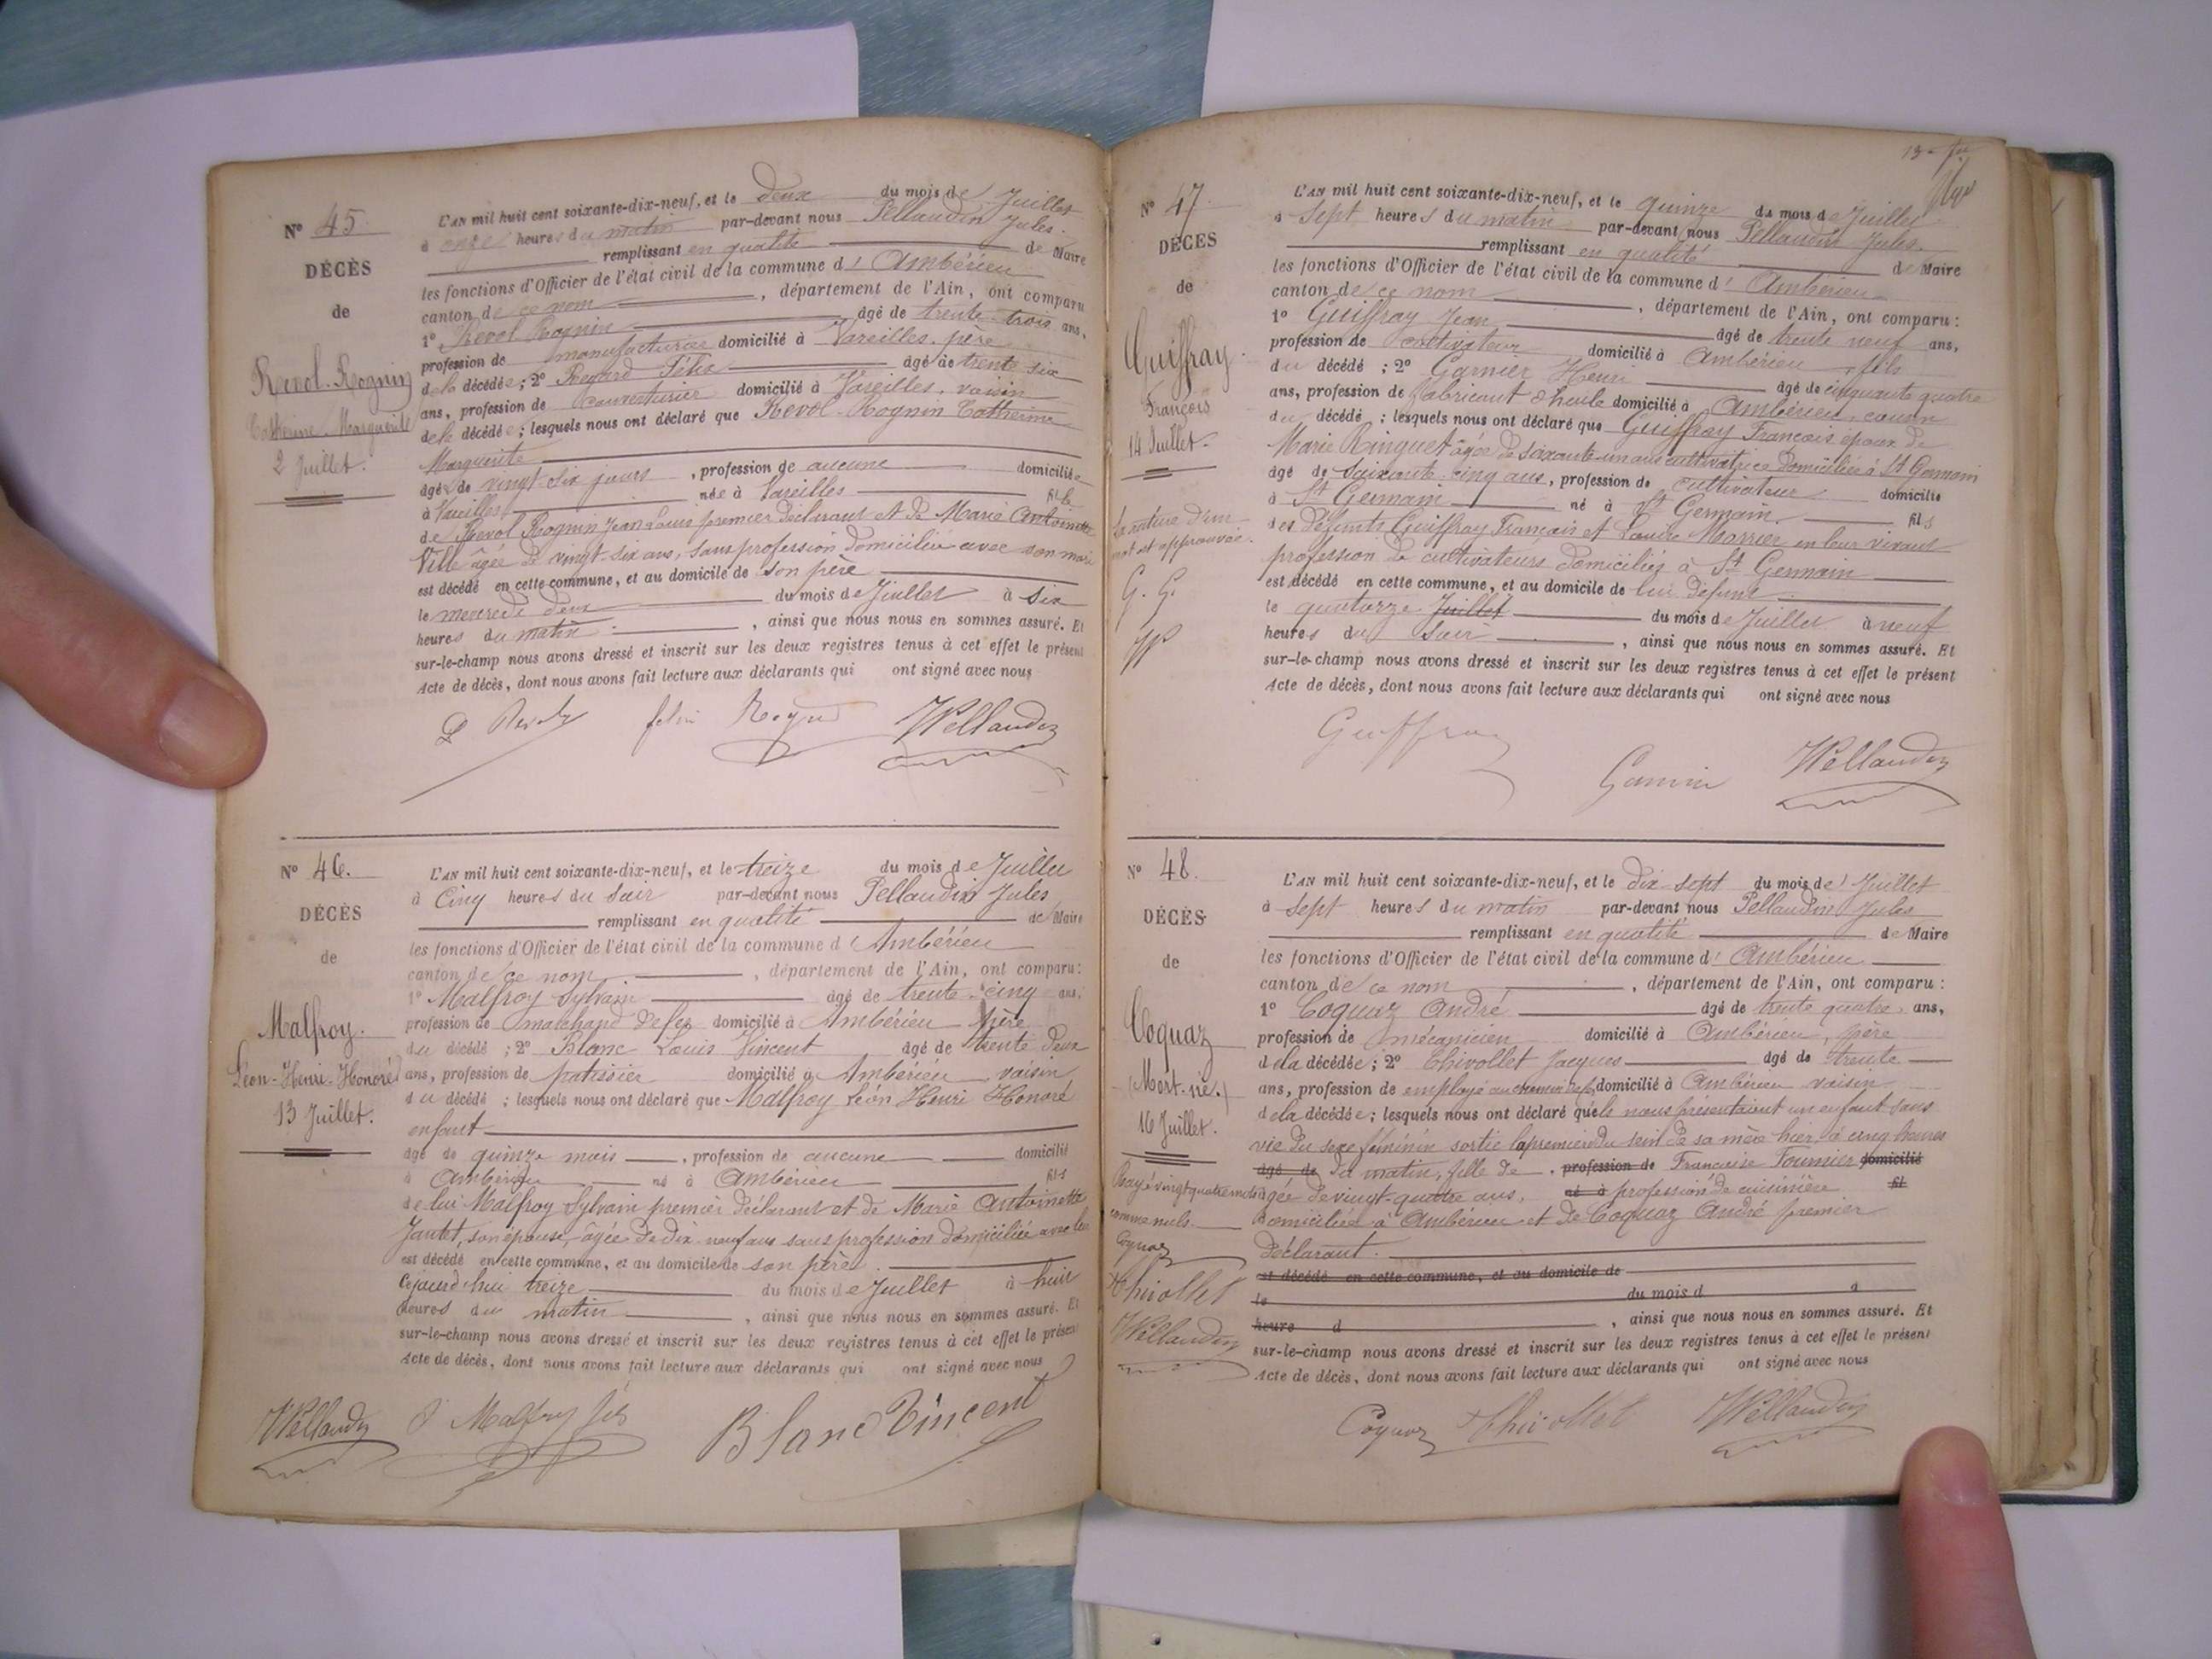 N° 45.
DÉCÈS
de
Revol-Rognin
Catherine Marguerite
2 Juillet.
L'AN mil huit cent soixante-dix-neuf, et le deux du mois de Juillet
à onze heures du matin par-devant nous Pellaudin Jules.
remplissant en qualité de Maire
les fonctions d'Officier de l'état civil de la commune d' Ambérieu
canton de ce nom, département de l'Ain, ont comparu
1° Revol Rognin âgé de trente-trois ans,
profession de manufacturier domicilié à Vareilles, père
de la décédée; 2° Regard Félix âgé de trente six
ans, profession de couverturier domicilié à Vareilles, voisin
de la décédée; lesquels nous ont déclaré que Revol-Rognin Catherine
Marguerite
âgée de vingt-six jours, profession de aucune domiciliée
à Vareilles née à Vareilles fille
de Revol Rognin Jean Louis premier déclarant et de Marie Antoinette
Ville âgée de vingt-six ans, sans profession domiciliée avec son mari
est décédé en cette commune, et au domicile de son père
le mercredi deux du mois de Juillet à six
heures du matin, ainsi que nous nous en sommes assuré. Et
sur-le-champ nous avons dressé et inscrit sur les deux registres tenus à cet effet le présent
Acte de décès, dont nous avons fait lecture aux déclarants qui ont signé avec nous
félix Regard Pellaudin
N° 46.
DÉCÈS
de
Malfroy.
Léon-Henri-Honoré
13 Juillet.
L'AN mil huit cent soixante-dix-neuf, et le treize du mois de Juillet
à Cinq heures du soir par-devant nous Pellaudin Jules
remplissant en qualité de Maire
les fonctions d'Officier de l'état civil de la commune d' Ambérieu
canton de ce nom, département de l'Ain, ont comparu:
1° Malfroy Sylvain âgé de trente-cinq ans,
profession de marchand de fer domicilié à Ambérieu père
du décédé; 2° Blanc Louis Vincent âgé de trente deux
ans, profession de patissier domicilié à Ambérieu voisin
du décédé; lesquels nous ont déclaré que Malfroy Léon Henri Honoré
enfant
âgé de quinze mois, profession de aucune domicilié
à Ambérieu né à Ambérieu fils
de lui Malfroy Sylvain premier déclarant et de Marie Antoinette
Jantet, son épouse, âgée de dix-neuf ans sans profession domiciliée avec lui
est décédé en cette commune, et au domicile de son père
Cejourd'hui treize du mois de Juillet à huit
heures du matin, ainsi que nous nous en sommes assuré. Et
sur-le-champ nous avons dressé et inscrit sur les deux registres tenus à cet effet le présent
Acte de décès, dont nous avons fait lecture aux déclarants qui ont signé avec nous
Pellaudin S Malfroy fils Blanc Vincent
N° 47.
DÉCÈS
de
Guiffray.
François
14 Juillet.
La rature d'un
mot est approuvée.
G. G.
L'AN mil huit cent soixante-dix-neuf, et le quinze du mois de Juillet
à Sept heures du matin par-devant nous Pellaudin Jules.
remplissant en qualité de Maire
les fonctions d'Officier de l'état civil de la commune d' Ambérieu
canton de ce nom, département de l'Ain, ont comparu:
1° Guiffray Jean âgé de trente neuf ans,
profession de cultivateur domicilié à Ambérieu, fils
du décédé; 2° Garnier Henri âgé de cinquante quatre
ans, profession de fabricant d'huile domicilié à Ambérieu, cousin
du décédé; lesquels nous ont déclaré que Guiffray François époux de
Marie Ringuet âgée de soixante-un ans cultivatrice domiciliée à St Germain
âgé de soixante-cinq ans, profession de cultivateur domicilié
à St Germain né à St Germain. fils
des défunts Guiffray François et Laudre Marrier en leur vivant
profession de cultivateurs domiciliés à St Germain
est décédé en cette commune, et au domicile de lui défunt
le quatorze Juillet du mois de Juillet à neuf
heures du soir, ainsi que nous nous en sommes assuré. Et
sur-le-champ nous avons dressé et inscrit sur les deux registres tenus à cet effet le présent
Acte de décès, dont nous avons fait lecture aux déclarants qui ont signé avec nous
Guiffray Garnier Pellaudin
N° 48.
DÉCÈS
de
Coquaz
(Mort-né.)
16 Juillet.
Rayé vingt quatre mots
comme nuls.
Coquaz
Thivollet
Pellaudin
L'AN mil huit cent soixante-dix-neuf, et le dix-sept du mois de Juillet
à sept heures du matin par-devant nous Pellaudin Jules
remplissant en qualité de Maire
les fonctions d'Officier de l'état civil de la commune d' Ambérieu
canton de ce nom, département de l'Ain, ont comparu:
1° Coquaz André âgé de trente quatre ans,
profession de mécanicien domicilié à Ambérieu, père
de la décédée; 2° Thivollet Jacques âgé de trente
ans, profession de employé au chemin de fer domicilié à Ambérieu voisin
de la décédée; lesquels nous ont déclaré qu'ils nous présentaient un enfant sans
vie du sexe féminin sortie du sein de sa mère hier, à cinq heures
âgé de du matin, fille de profession de Françoise Fournier domicilié
âgée de vingt-quatre ans, né à profession de cuisinière fil
domiciliée à Ambérieu et de Coquaz André premier
Déclarant.
est décédé en cette commune, et au domicile de
le du mois d à
heure d, ainsi que nous nous en sommes assuré. Et
sur-le-champ nous avons dressé et inscrit sur les deux registres tenus à cet effet le présent
Acte de décès, dont nous avons fait lecture aux déclarants qui ont signé avec nous
Coquaz Thivollet Pellaudin